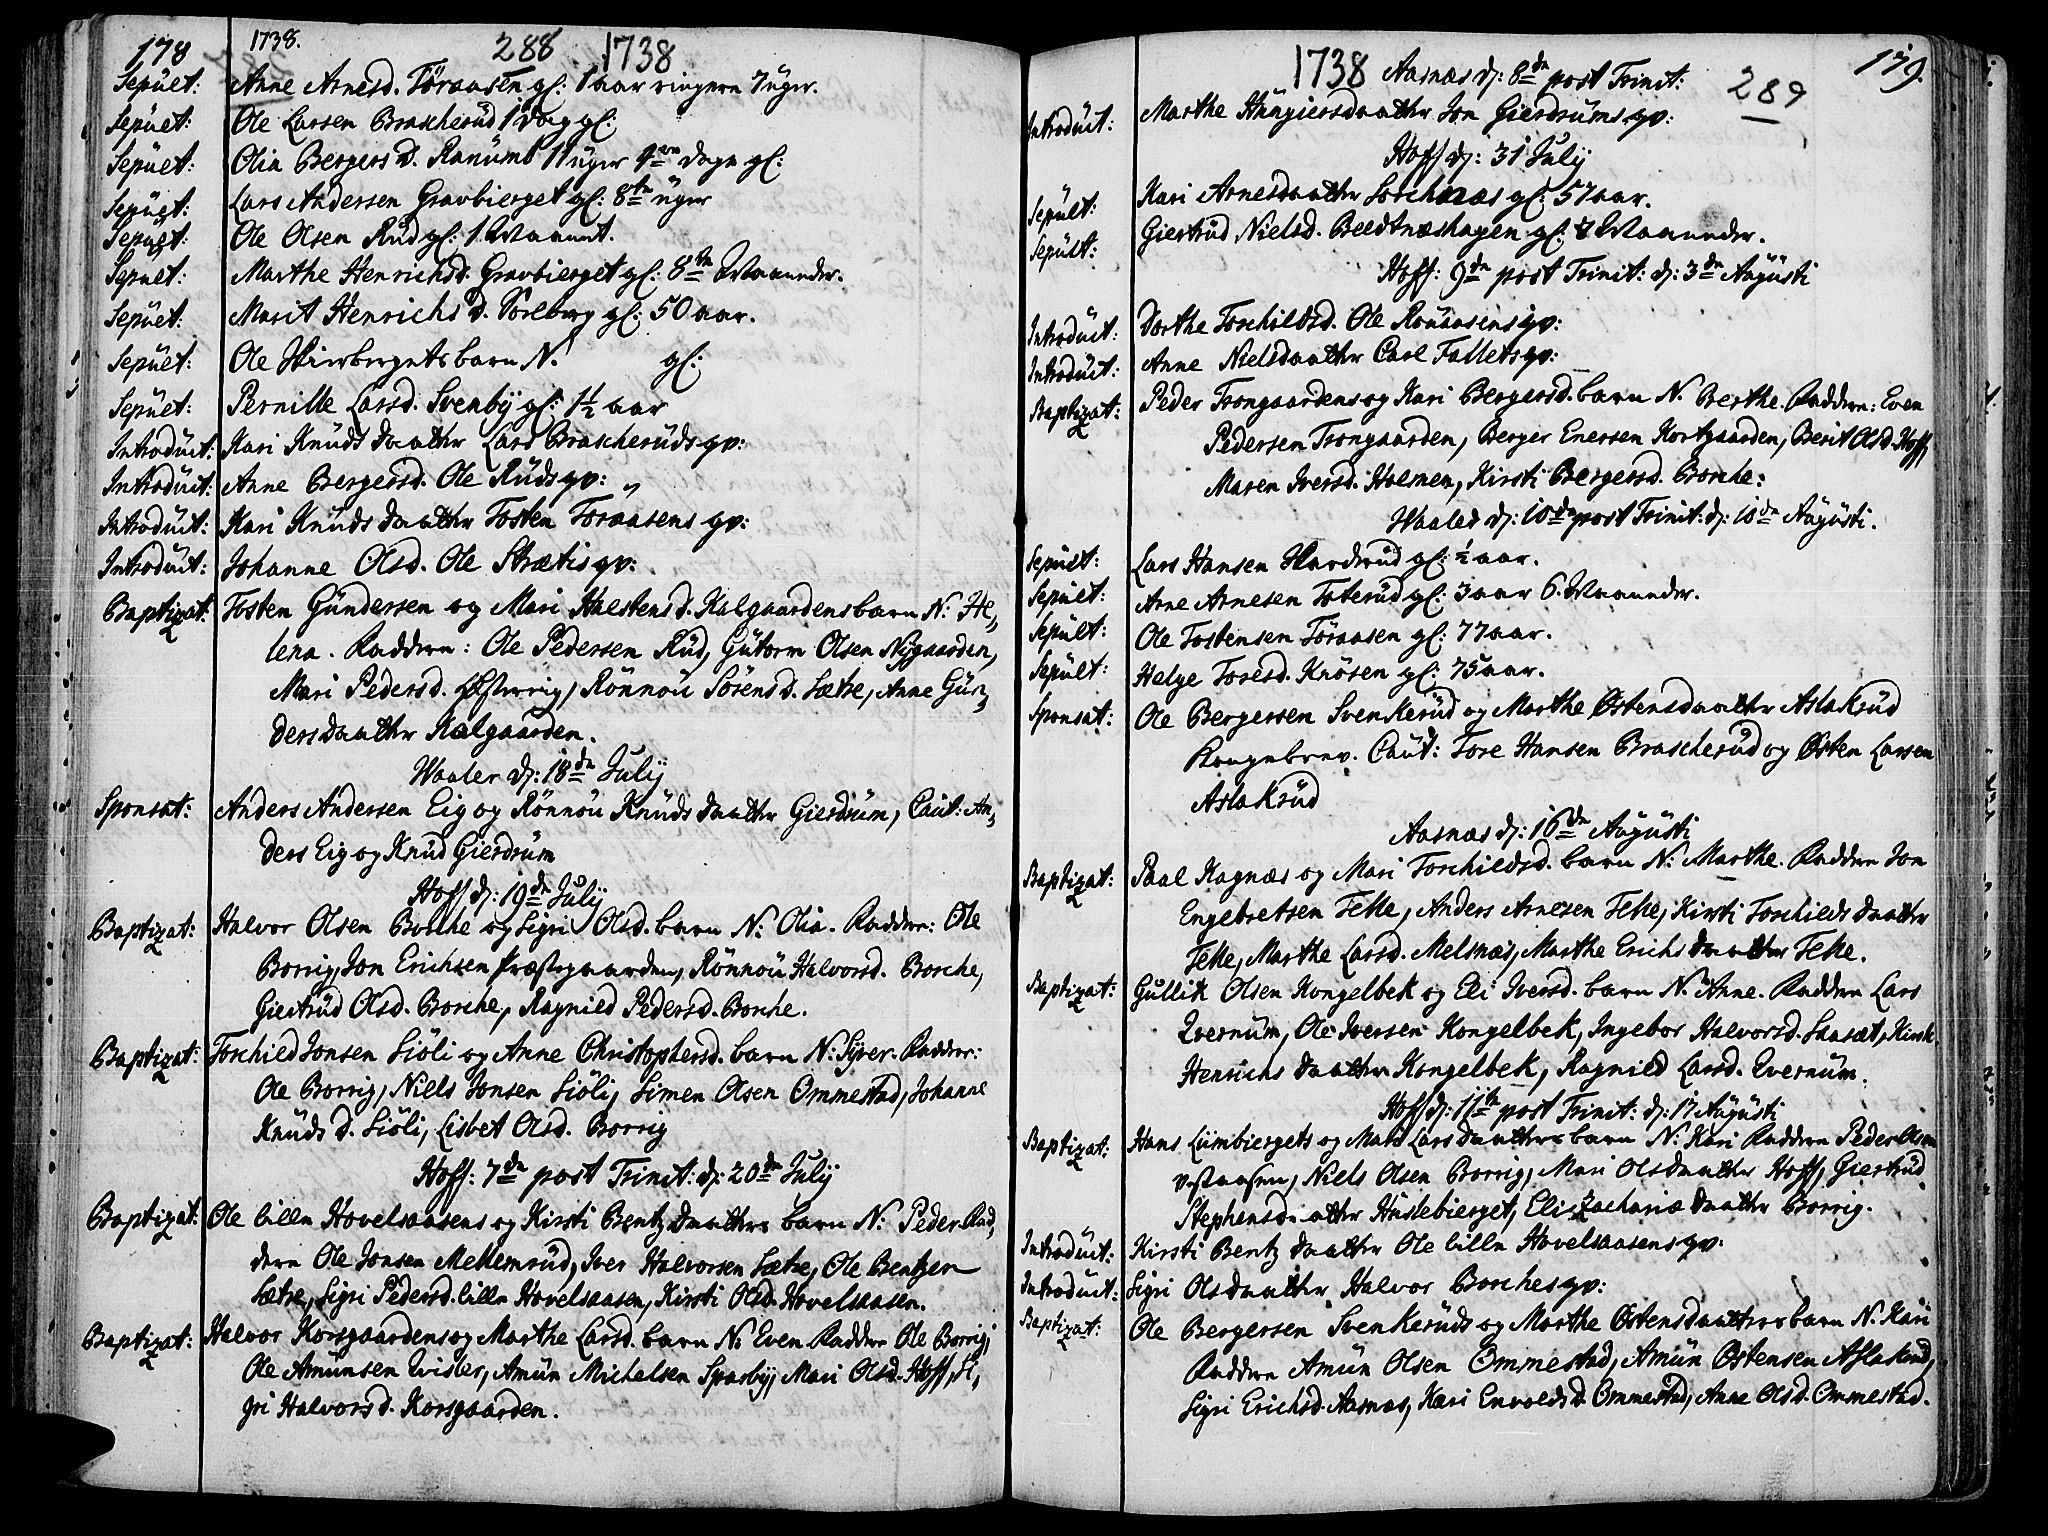 178 1738. 288 1738
Sepuet: Anne Arnesd. Töraasen gl: 1 aar ringere 7 uger.
Sepuet: Ole Larsen Brascherüd 1 Dag gl:
Sepuet: Olia Bergers D. Ranüms 11 uger dage gl:
Sepuet: Lars Andersen Gravbierget gl: 8te üger
Sepuet: Ole Olsen Rüd gl: 1. Maanet.
Sepuet: Marthe Henrichsd. Gravbierget gl: 8te Maaneder.
Sepuet: Marit Henrichs D. Sorberg gl: 50 aar.
Sepuet: Ole barn N. gl:
Sepuet: Pernille Larsd. Svenbÿ gl: 1½ aar
Introduit: Kari Knüds Daatter Lars Brascherüds qv:
Introduit: Anne Bergersd. Ole Rüds qv:
Introduit: Kari Knüds Daatter Tosten Toraasens qv:
Introduit: Johanne Olsd. Ole Strætis qv:
Baptizat: Tosten Gündersen og Mari Halstens d. Kalgaardens barn N: He„
lena. Faddere: Ole Pedersen Rüd, Gütorm Olsen Nygaarden,
Mari Pedersd. Rönnoü Sörensd. Sætre, Anne Gün„
ders Daatter Kalgaarden.
Waaler d: 18de Julÿ
Sponsat: Anders Andersen Eig og Rönnoü Knüds Daatter Gierdrüm, Caut: An„
ders Eig og Knüd Gierdrüm
Hoff d: 19de Julÿ
Baptizat: Halvor Olsen Borche og Sigri Olsd. barn N: Olia. Faddere: Ole
Borrig, Jon Erichsen Præstegaarden, Rönnoü Halvorsd. Borche,
Giertrüd Olsd. Borche, Ragnild Pedersd. Borche.
Baptizat: Torchild Jonsen Siöli og Anne Christophersd. barn N: Syver. Faddere:
Ole Borrig, Niels Jonsen Siöli, Simen Olsen Ommestad, Johanne
Knüds D. Siöli, Lisbet Olsd. Borrig
Hoff: 7de post Trinit: d: 20de Julÿ
Baptizat: Ole lille Hovelsaasens og Kirsti Bentz Daatters barn N: Peder. Fad„
dere Ole Jonsen Mellemrüd, Iver Halvorsen Sætre, Ole Bentzen
Sætre, Sigri Pedersd. lille Hovelsaasen, Kirsti Olsd. Hovelsaasen.
Baptizat: Halvor Korsgaardens og Marthe Larsd. barn N: Even Faddere Ole Borrig,
Ole Amünsen Amün Michelsen Sparbÿ, Mari Olsd. Hoff, Si„
gri Halvors d. Korsgaarden.
1738 Aasnæs d: 8de post Trinit: 289 179.
Introduit: Marthe Daatter Jon Gierdrüms qv:
Hoff d: 31 Julÿ
Sepult: Kari Arnesdaatter Sorchnæs gl: 57 aar.
Sepult: Giertrüd Nielsd. gl: Maaneder.
Hoff: 9de post Trinit: d: 3de Augüsti
Introduit: Dorthe Torchildsd. Ole qv:
Introduit: Anne Nielsdaatter Carl Fallets qv:
Baptizat: Peder Trongaardens og Kari Bergersd. barn N. Berthe. Faddere: Even
Pedersen Trongaarden, Berger Enersen Kortgaarden, Berit Olsd. Hoff,
Maren Iversd. Holmen, Kirsti Bergersd. Borche:
Waaler d: 10de post Trinit: d: 10de Augüsti.
Sepult: Lars Hansen gl: ½ aar.
Sepult: Arne Arnesen Toterüd gl: 3 aar 6. Maaneder.
Sepult: Ole Tostensen Töraasen gl: 77 aar.
Sepult: Helge Toresd. Knösen gl: 75 aar.
Sponsat: Ole Bergersen Svenkerüd og Marthe Østensdaatter Aslakrüd
Kongebrev. Caut: Tore Hansen Brascherüd og Østen Larsen
Aslakrüd
Aasnæs d: 16de Augüsti
Baptizat: Paal Kagnæs og Mari Torchildsd. barn N: Marthe. Faddere Jon
Engebretsen Felle, Anders Arnesen Felle, Kirsti Torchilds Daatter
Felle, Marthe Larsd. Melsnæs, Marthe Erichs Daatter Felle.
Baptizat: Güllik Olsen Kongelbek og Eli Iversd. barn N. Anne. Faddere Lars
Evernüm, Ole Iversen Kongelbek, Ingebor Halvorsd. Kirsti
Henrichs Daatter Kongelbek, Ragnild Larsd. Evernüm.
Hoff d: 11te post Trinit: d: 17 Augüsti
Baptizat: Hans Liimbiergets og Mari Lars Daatters barn N: Kari Faddere Peder Olsen
Niels Olsen Borrig, Mari Olsdaatter Hoff, Giertrüd
Stephensdaatter Hüslebierget, Elis Zachariæ Daatter Borrig.
Introduit: Kirsti Bentz Daatter Ole lille Hovelsaasens qv:
Introduit: Sigri Olsdaatter Halvor Borches qv:
Baptizat: Ole Bergersen Svenkerüds og Marthe Østensdaatters barn N. Kari
Faddere Amün Olsen Ommestad, Amün Østensen Aslakrüd,
Sigri Erichsd. Aasnæs, Kari Envolds D. Ommestad, Anne Olsd. Ommestad.